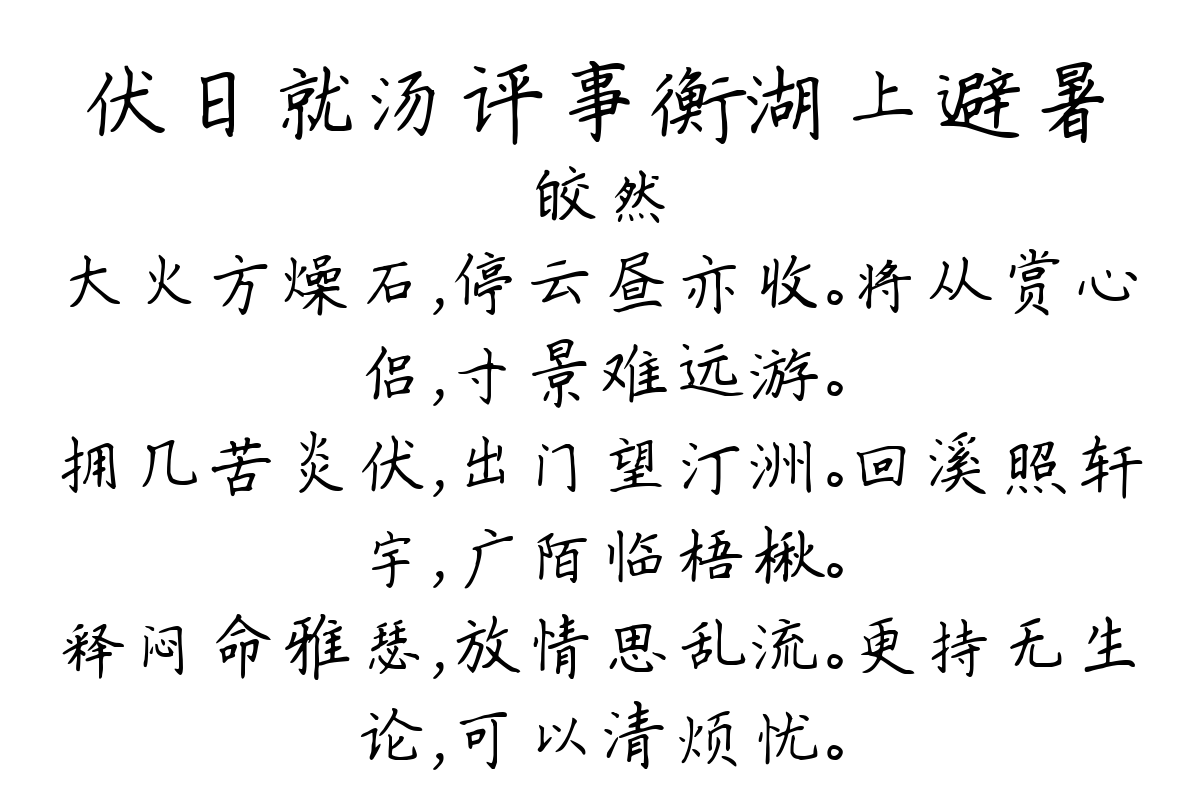 伏日就汤评事衡湖上避暑
皎然
大火方燥石,停云昼亦收。将从赏心
侣,寸景难远游。
拥几苦炎伏,出门望汀洲。回溪照轩
宇,广陌临梧楸。
释闷命雅瑟,放情思乱流。更持无生
论,可以清烦忧。